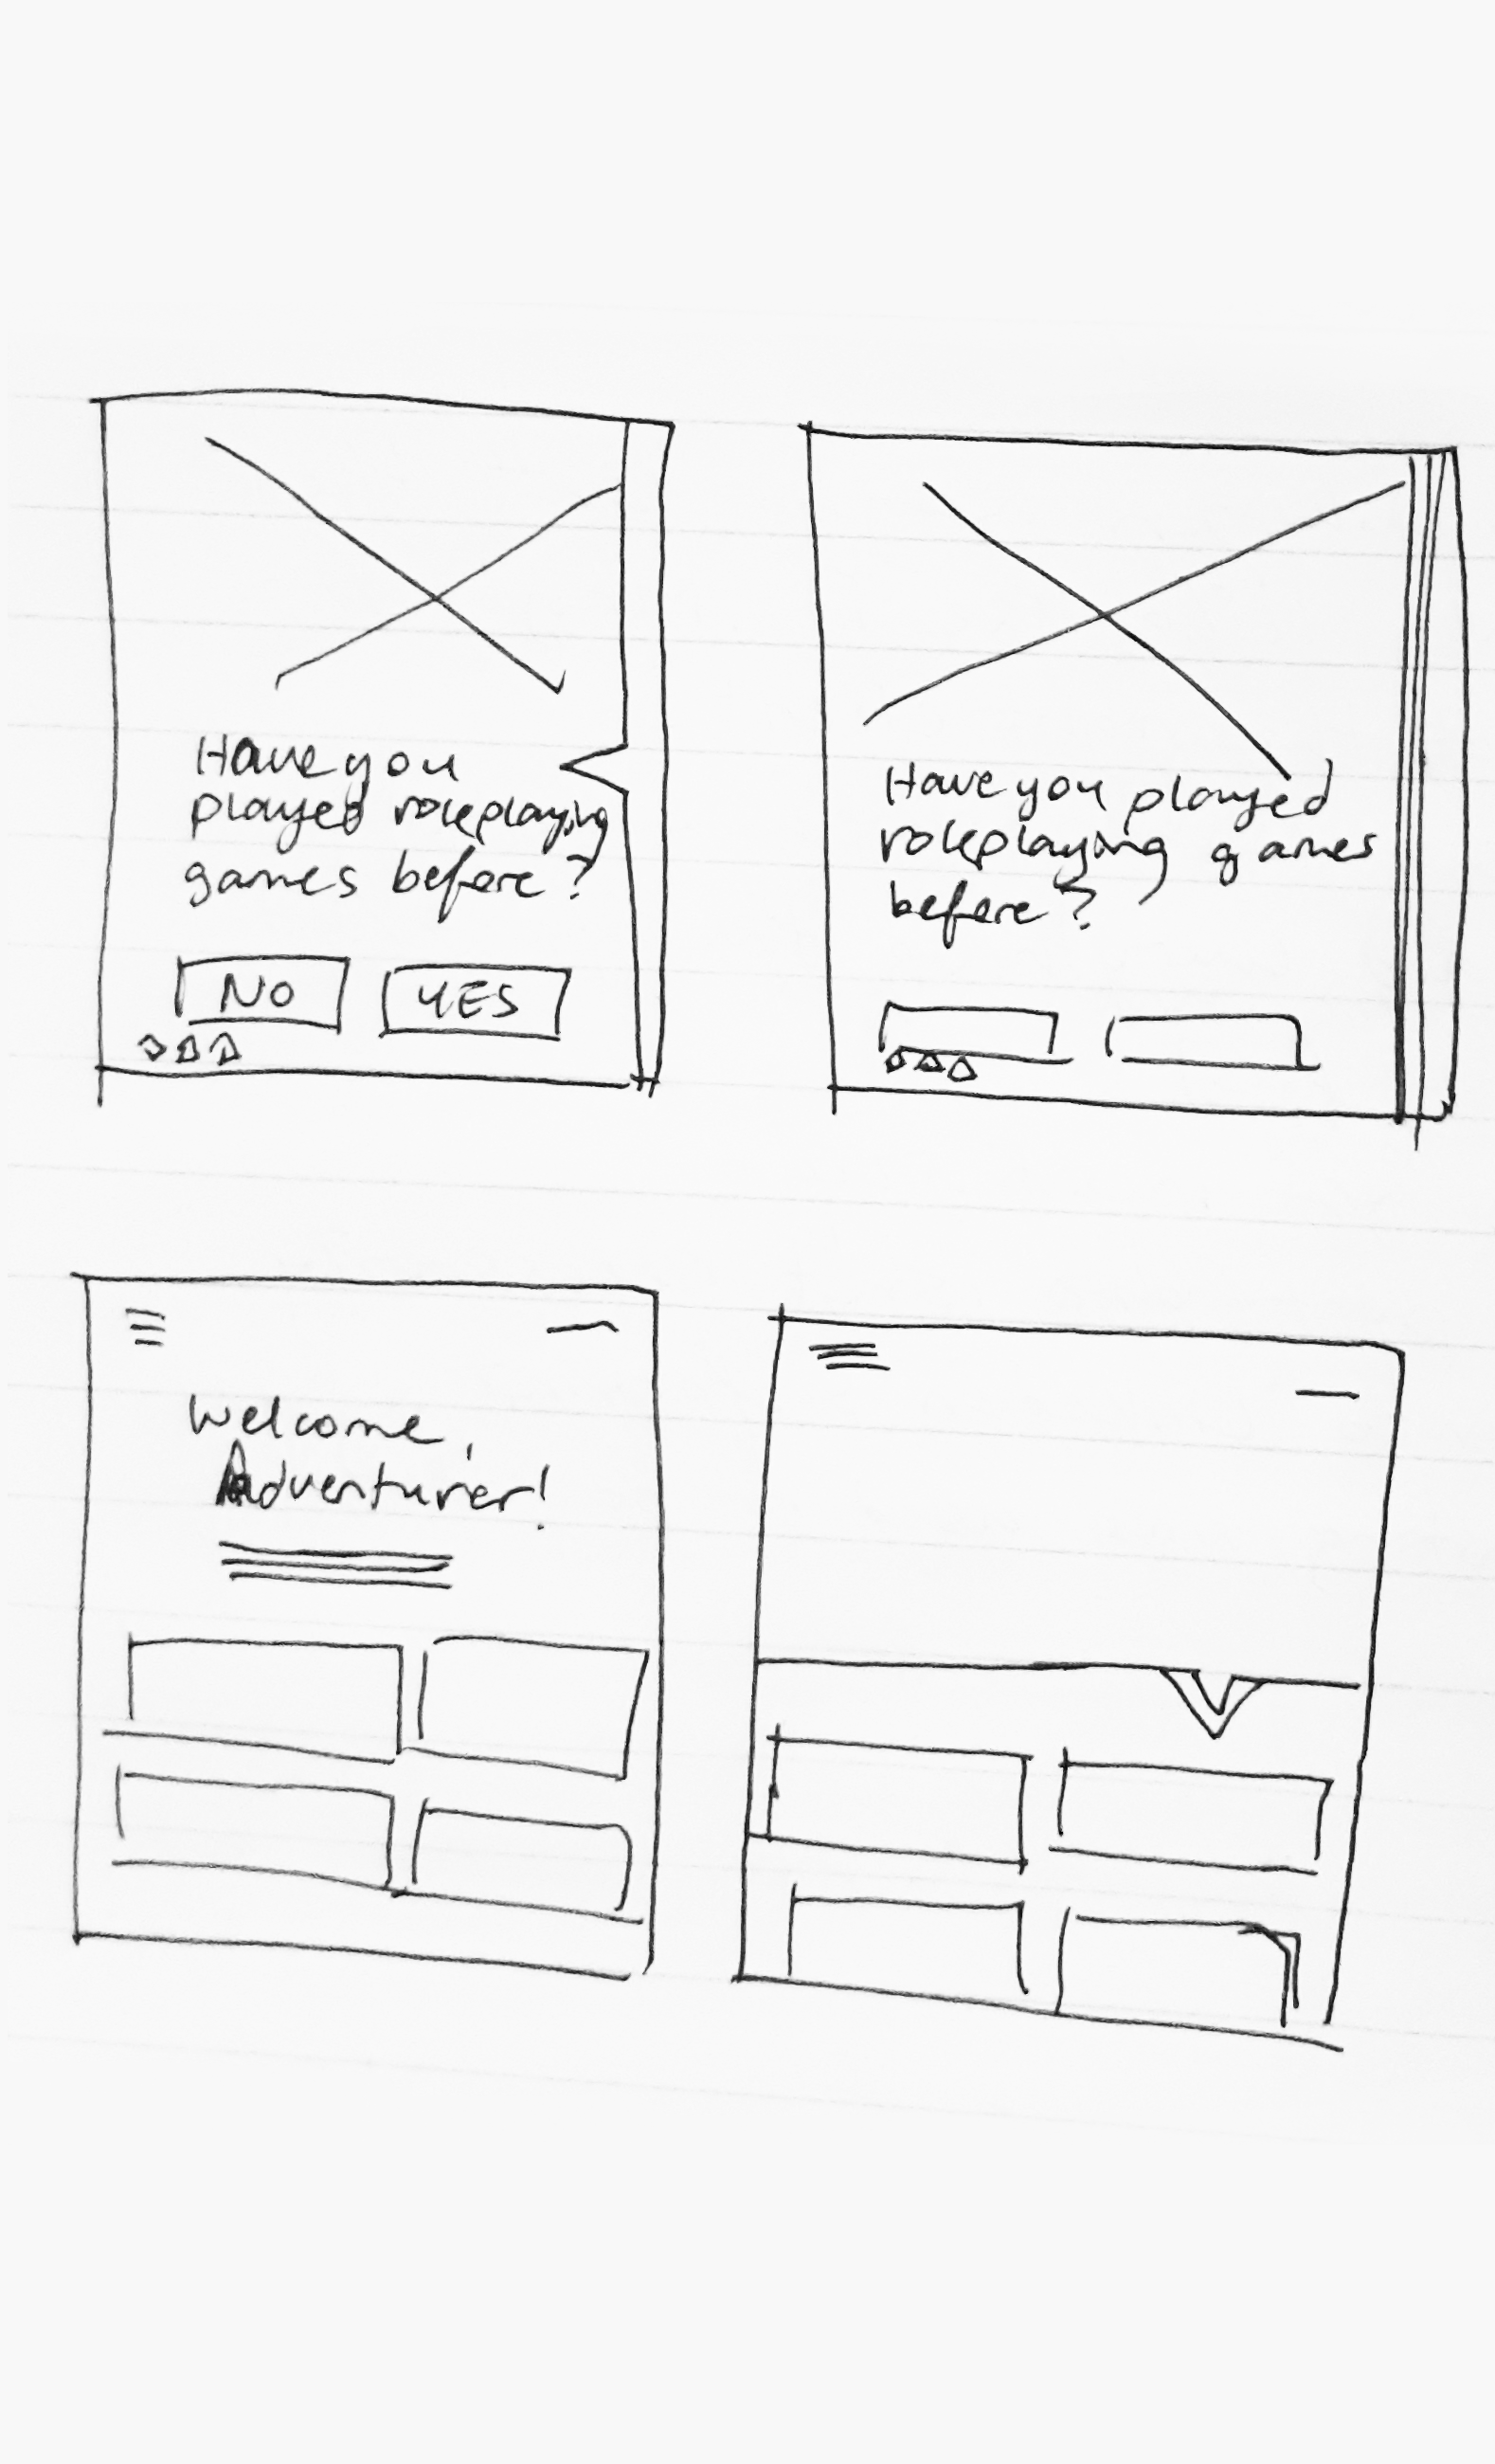 Have you
played roleplaying
games before?
NO YES
Have you played
roleplaying games
before?
Welcome,
Adventurer!